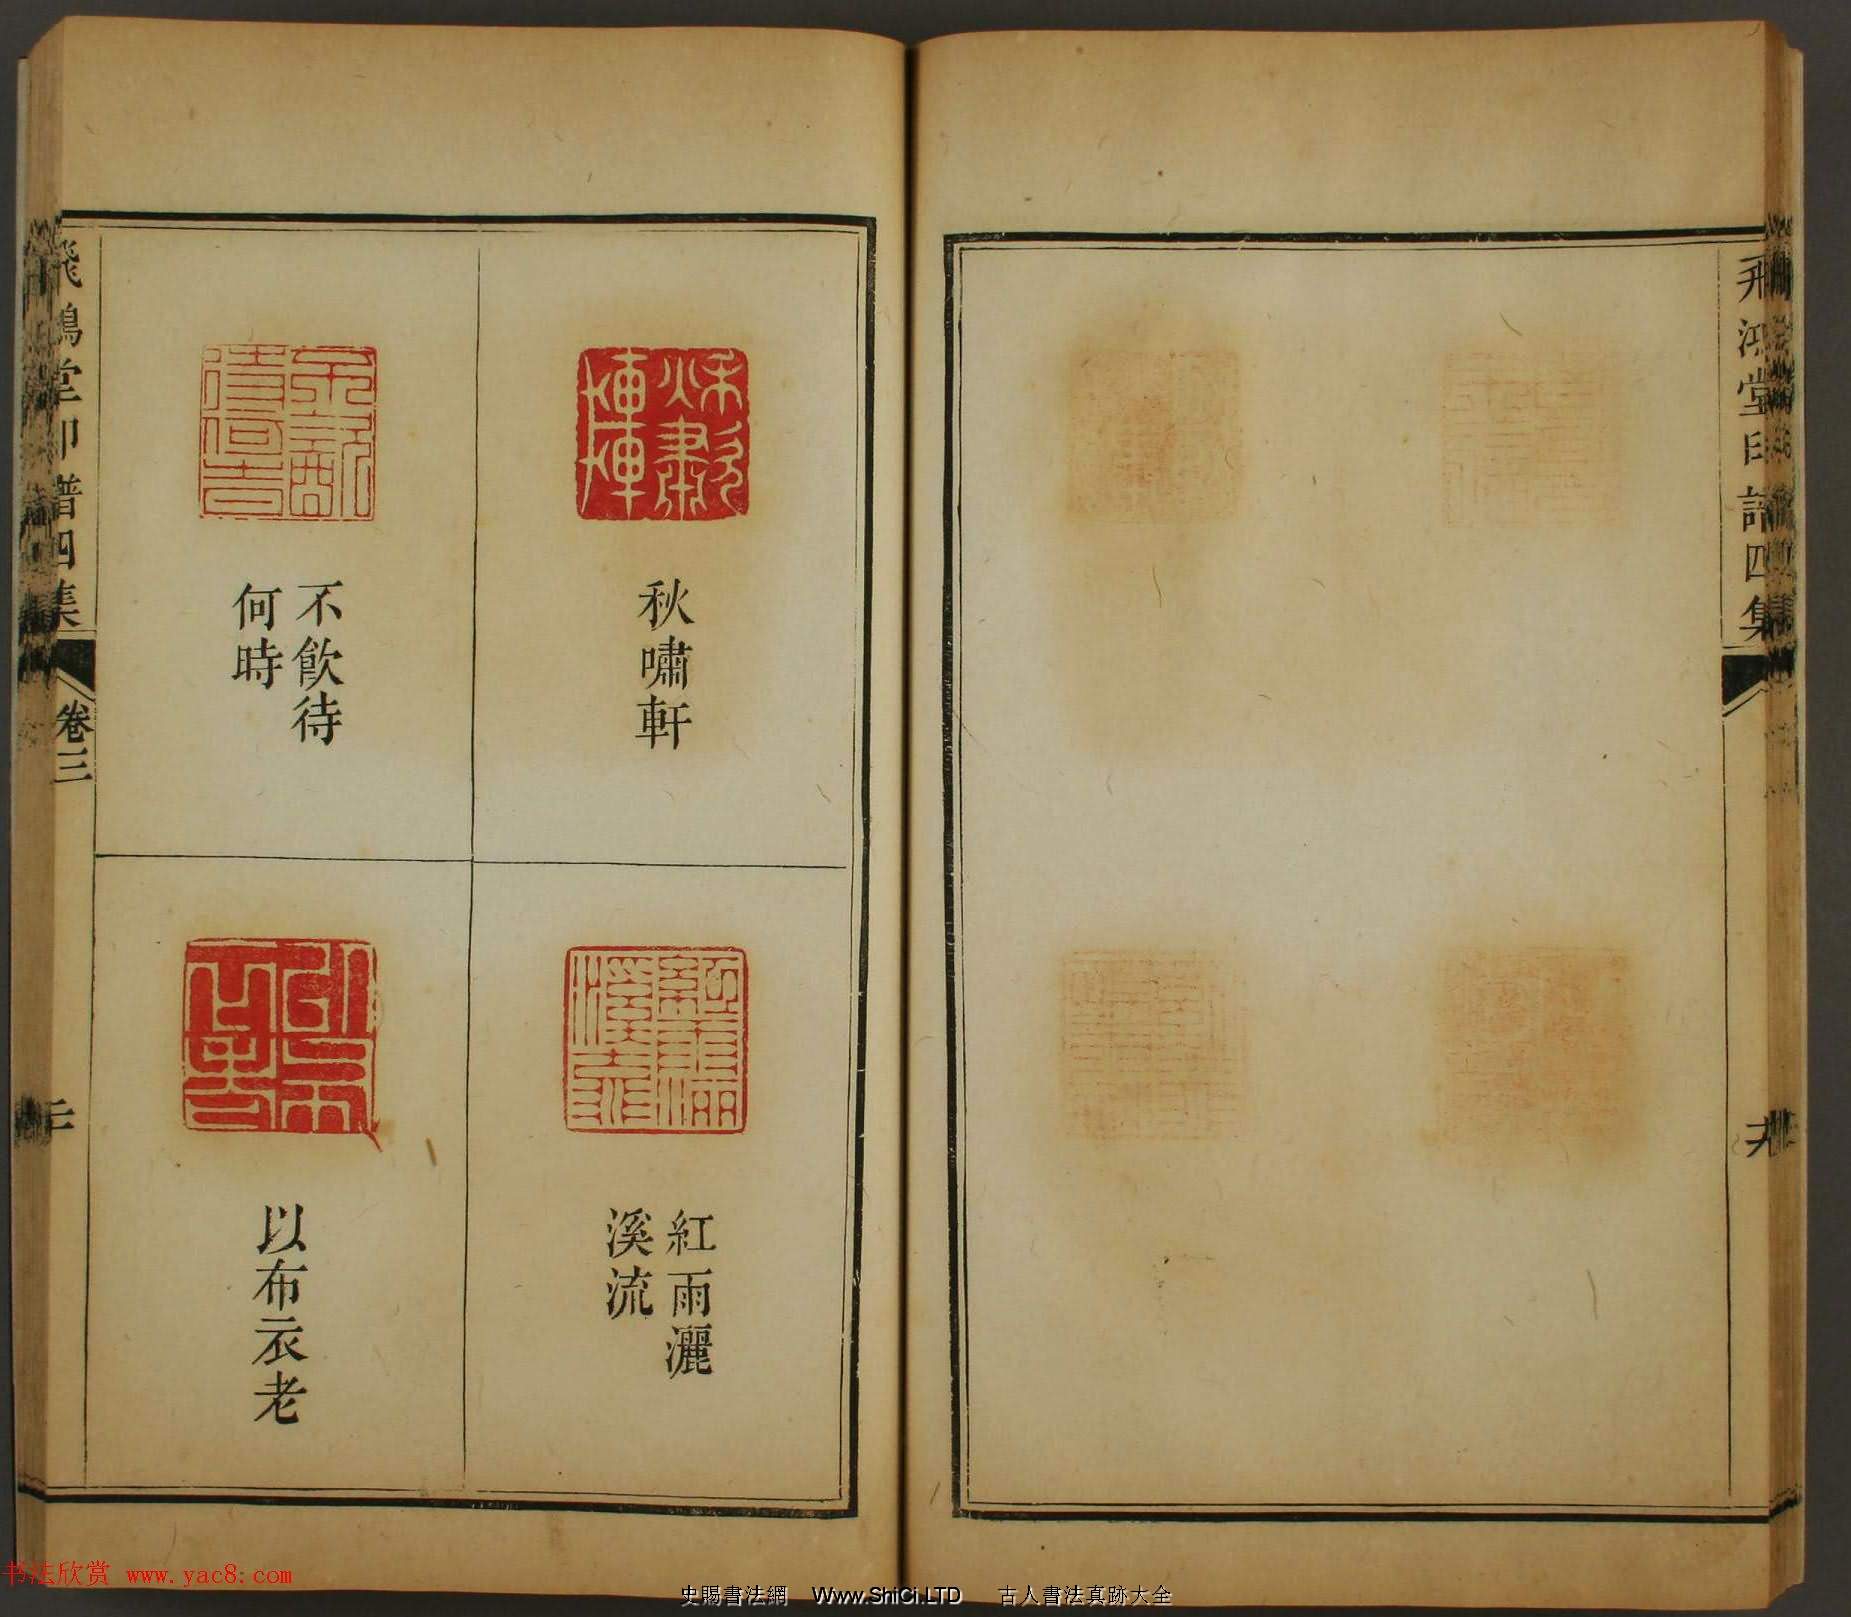 飛鴻堂印譜四集
十九
秋嘯軒
不飲待
何時
紅雨灑
溪流
以布衣老
飛鴻堂印譜四集
卷三
二
书法欣赏 www.yac8.com
史賜書法網 Www.ShiCi.LTD 古人書法真跡大全